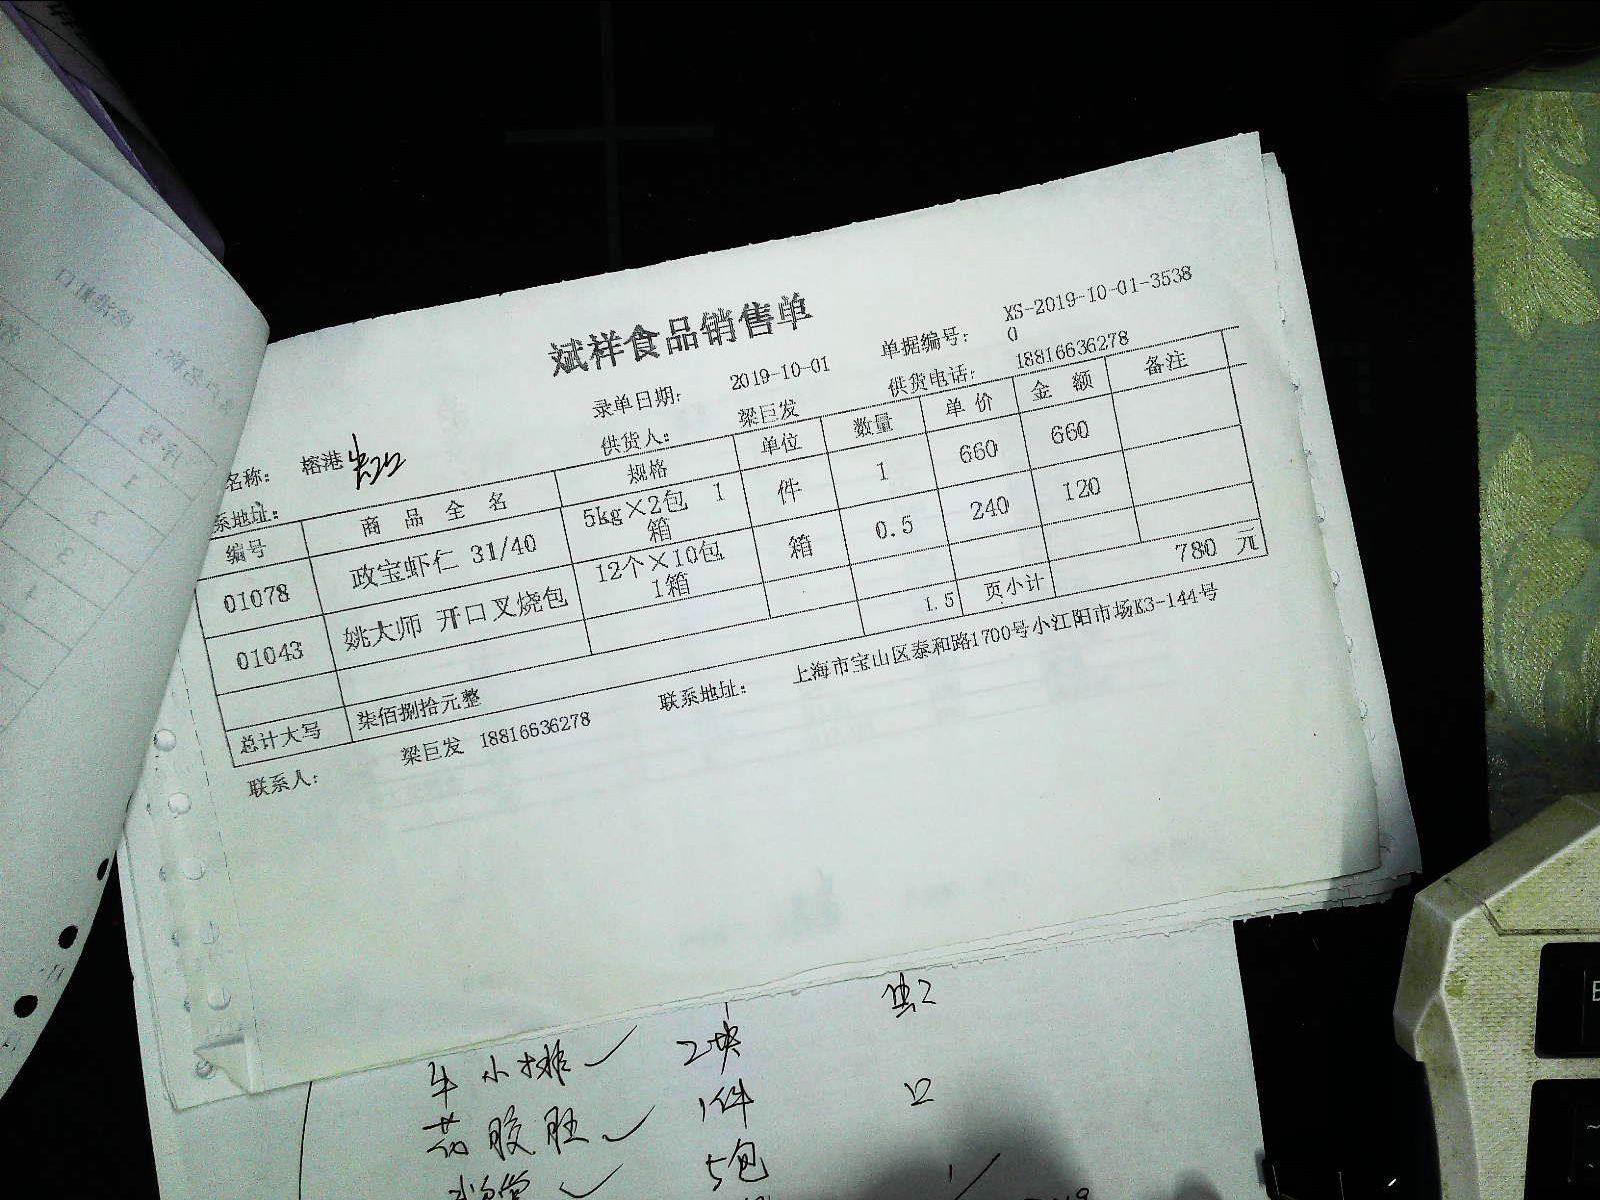 斌祥食品销售单
录单日期： 2019-10-01 单据编号： XS-2019-10-01-3538
0
名称： 榕港 供货人： 梁巨发 供货电话： 18816636278
系地址：
编号 商品全名 规格 单位 数量 单价 金额 备注
01078 政宝虾仁 31/40 5kg×2包 1箱 件 1 660 660
01043 姚大师 开口叉烧包 12个×10包 1箱 箱 0.5 240 120
1.5 页小计 780 元
总计大写 柒佰捌拾元整
联系人： 梁巨发 18816636278 联系地址： 上海市宝山区泰和路1700号小江阳市场K3-144号
牛小排 2块
1件
5包